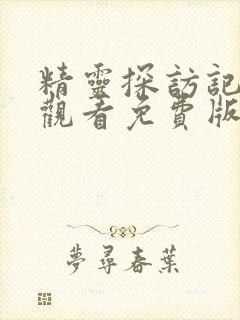 精靈探訪記
觀看免費版
夢尋春葉